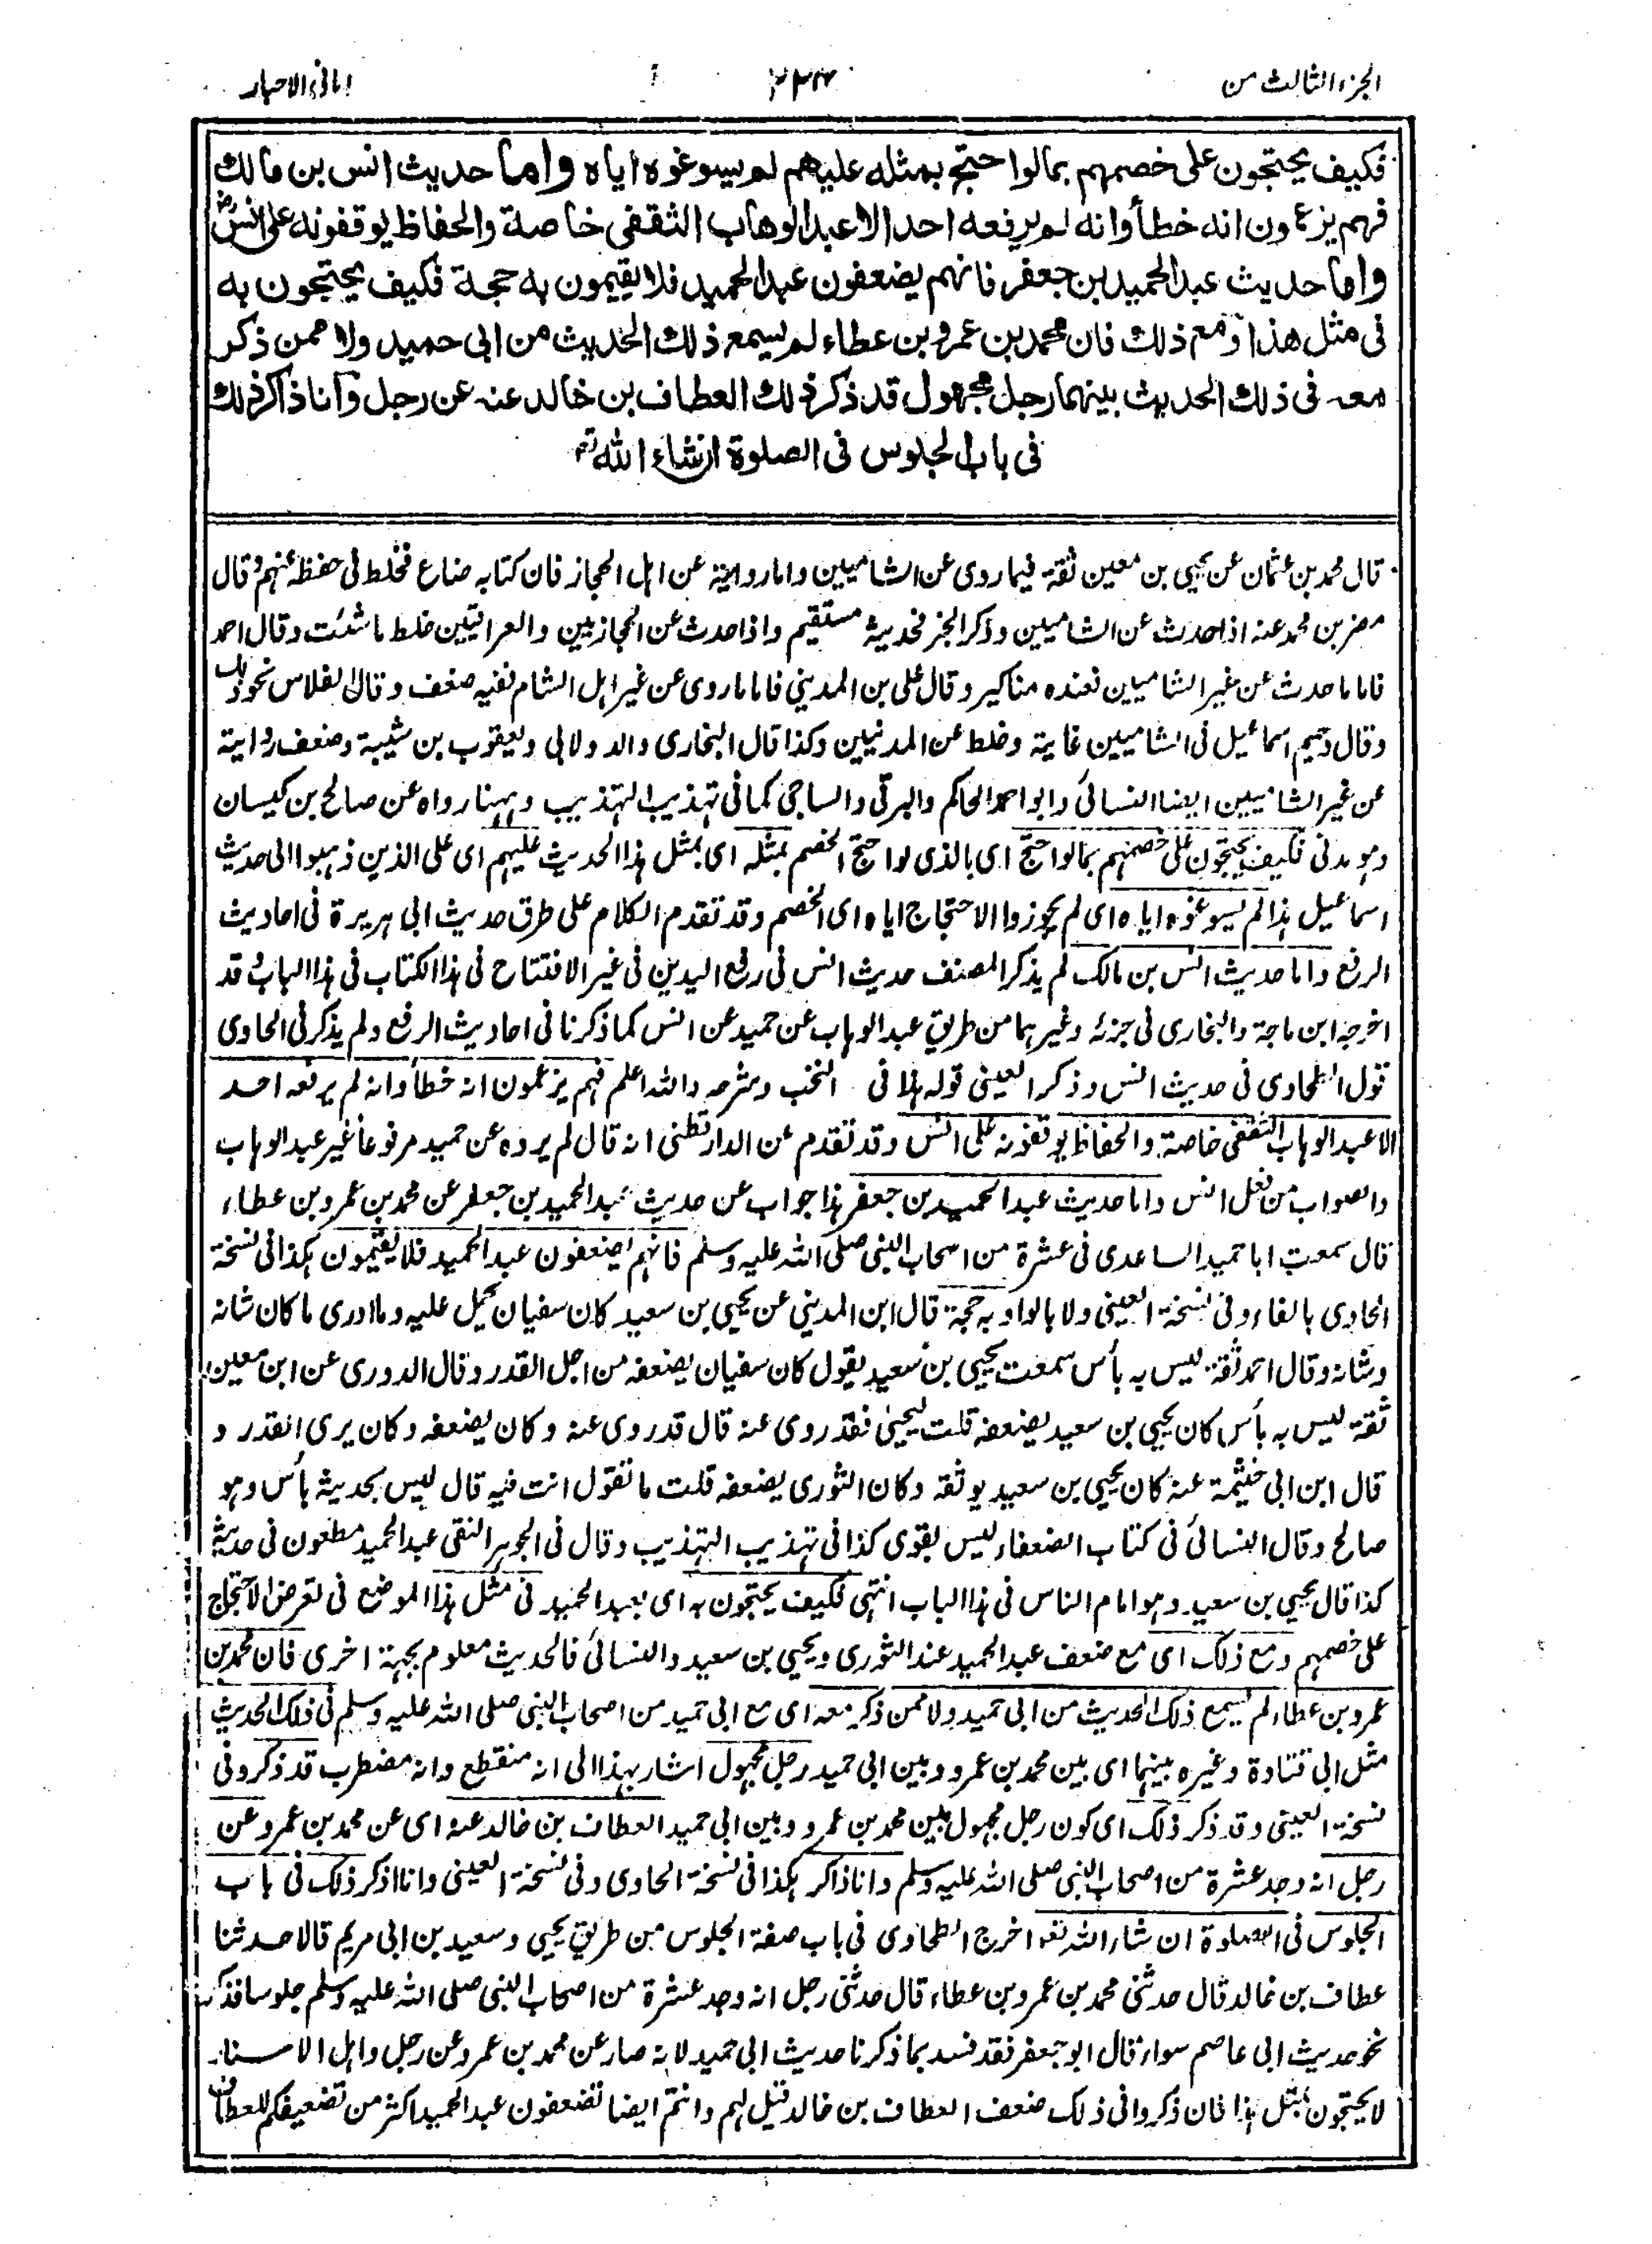 الجزء الثالث من
٢٣٤
امانى الاحبار
فكيف يحتجون على خصمهم بمالوا حتج بمثله عليهم لم يسوغوه اياه واما حديث انس بن مالك
فهم يزعمون انه خطأ وانه لم يرفعه احد الا عبد الوهاب الثقفى خاصة والحفاظ يوقفونه على انس رض
واما حديث عبد الحميد بن جعفر فانهم يضعفون عبد الحميد فلا يقيمون به حجة فكيف يحتجون به
فى مثل هذا ومع ذلك فان محمد بن عمرو بن عطاء لم يسمع ذلك الحديث من ابى حميد ولا ممن ذكر
معه فى ذلك الحديث بينهما رجل مجهول قد ذكر ذلك العطاف بن خالد عنه عن رجل وانا ذاكر ذلك
فى باب الجلوس فى الصلوة ان شاء الله تعه
قال محمد بن عثمان عن يحيى بن معين ثقة فيما روى عن الشاميين واما روايته عن اهل الحجاز فان كتابه ضاع فخلط فى حفظه عنهم وقال
مضر بن محمد عنه اذا حدث عن الشاميين وذكر الخبر فحديثه مستقيم واذا حدث عن الحجازيين والعراقيين خلط ما شئت وقال احمد
فاما ما حدث عن غير الشاميين فعنده مناكير وقال على بن المدينى فاما ما روى عن غير اهل الشام ففيه ضعف وقال الفلاس نحو ذلك
وقال دحيم اسماعيل فى الشاميين غاية وخلط عن المدنيين وكذا قال البخارى والدولابى ويعقوب بن شيبة وضعف روايته
عن غير الشاميين ايضا النسائى وابو احمد الحاكم والبرقى والساجى كما فى تهذيب التهذيب وههنا رواه عن صالح بن كيسان
وهو مدنى فكيف يحتجون على خصمهم بمالوا حتج اى بالذى لوا حتج الخصم بمثله اى بمثل هذا الحديث عليهم اى على الذين ذهبوا الى حديث
اسماعيل هذا لم يسوغوه اياه اى لم يجوزوا الاحتجاج اياه اى الخصم وقد تقدم الكلام على طرق حديث ابى هريرة فى احاديث
الرفع واما حديث انس بن مالك لم يذكر المصنف حديث انس فى رفع اليدين فى غير الافتتاح فى هذا الكتاب فى هذا الباب وقد
اخرجه ابن ماجة والبخارى فى جزئه وغيرهما من طريق عبد الوهاب عن حميد عن انس كما ذكرنا فى احاديث الرفع ولم يذكر فى الحاوى
قول الطحاوى فى حديث انس وذكر العينى قوله هذا فى النخب وشرحه والله اعلم فهم يزعمون انه خطأ وانه لم يرفعه احد
الا عبد الوهاب الثقفى خاصة والحفاظ يوقفونه على انس وقد تقدم عن الدارقطنى انه قال لم يروه عن حميد مرفوعا غير عبد الوهاب
والصواب من فعل انس واما حديث عبد الحميد بن جعفر هذا جواب عن حديث عبد الحميد بن جعفر عن محمد بن عمرو بن عطاء
قال سمعت ابا حميد الساعدى فى عشرة من اصحاب النبى صلى الله عليه وسلم فانهم يضعفون عبد الحميد فلا يقيمون هكذا فى نسخة
الحاوى بالفاء وفى نسخة العينى ولا بالواو به حجة قال ابن المدينى عن يحيى بن سعيد كان سفيان يحمل عليه وما ادرى ما كان شانه
وشانه وقال احمد ثقة ليس به بأس سمعت يحيى بن سعيد يقول كان سفيان يضعفه من اجل القدر وقال الدورى عن ابن معين
ثقة ليس به بأس كان يحيى بن سعيد يضعفه قلت ليحيى فقد روى عنه قال قد روى عنه وكان يضعفه وكان يرى القدر و
قال ابن ابى خيثمة عنه كان يحيى بن سعيد يوثقه وكان الثورى يضعفه قلت ما تقول انت فيه قال ليس بحديثه بأس وهو
صالح وقال النسائى فى كتاب الضعفاء ليس بقوى كذا فى تهذيب التهذيب وقال فى الجوهر النقى عبد الحميد مطعون فى حديثه
كذا قال يحيى بن سعيد وهو امام الناس فى هذا الباب انتهى فكيف يحتجون به اى بعبد الحميد فى مثل هذا الموضع فى تعرض الاحتجاج
على خصمهم ومع ذلك اى مع ضعف عبد الحميد عند الثورى ويحيى بن سعيد والنسائى فالحديث معلوم بجهة اخرى فان محمد بن
عمرو بن عطاء لم يسمع ذلك الحديث من ابى حميد ولا ممن ذكر معه اى مع ابى حميد من اصحاب النبى صلى الله عليه وسلم فى ذلك الحديث
مثل ابى قتادة وغيره بينهما اى بين محمد بن عمرو وبين ابى حميد رجل مجهول اشار بهذا الى انه منقطع وانه مضطرب قد ذكر وفى
نسخة العينى وقد ذكر ذلك اى كون رجل مجهول بين محمد بن عمرو وبين ابى حميد العطاف بن خالد عنه اى عن محمد بن عمرو عن
رجل انه وجد عشرة من اصحاب النبى صلى الله عليه وسلم وانا ذاكر هكذا فى نسخة الحاوى وفى نسخة العينى وانا اذكر ذلك فى باب
الجلوس فى الصلوة ان شاء الله تعه اخرج الطحاوى فى باب صفة الجلوس من طريق يحيى وسعيد بن ابى مريم قالا حدثنا
عطاف بن خالد قال حدثنى محمد بن عمرو بن عطاء قال حدثنى رجل انه وجد عشرة من اصحاب النبى صلى الله عليه وسلم جلوسا فذكر
نحو حديث ابى عاصم سواء قال ابو جعفر فقد فسد بما ذكرنا حديث ابى حميد لانه صار عن محمد بن عمرو عن رجل واهل الاسناد
لا يحتجون بمثل هذا فان ذكروا فى ذلك ضعف العطاف بن خالد قيل لهم وانتم ايضا تضعفون عبد الحميد اكثر من تضعيفكم للعطاف